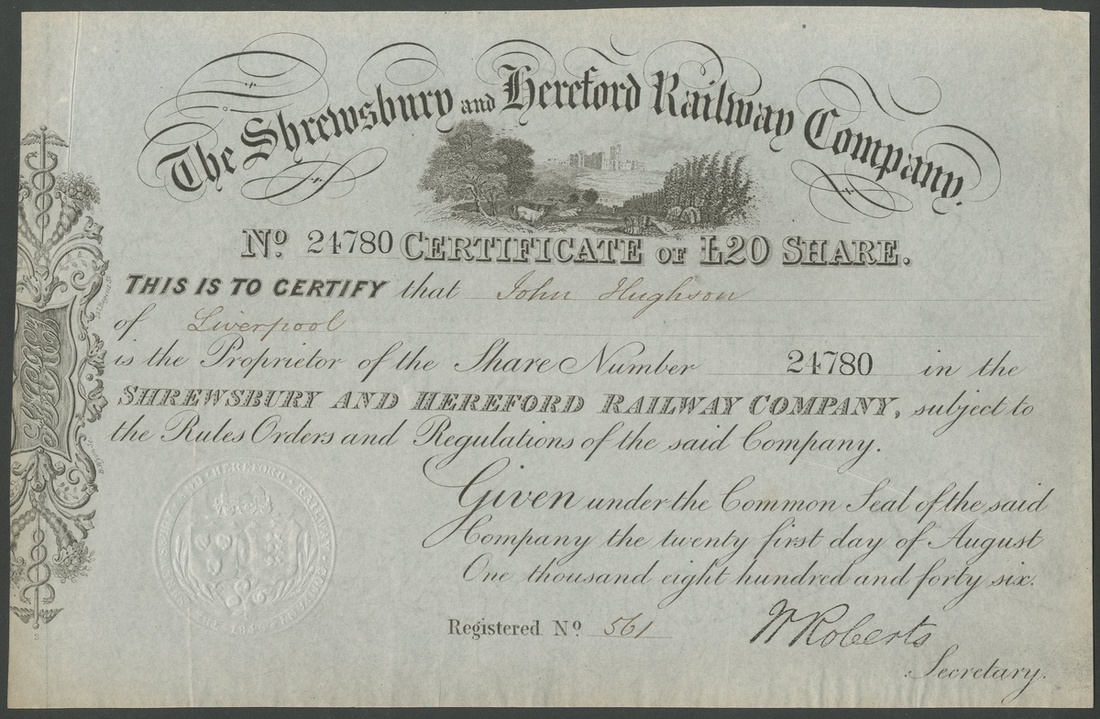 The Shrewsbury and Hereford Railway Company.
No. 24780 CERTIFICATE OF £20 SHARE.
THIS IS TO CERTIFY that John Hughson
of Liverpool
is the Proprietor of the Share Number 24780 in the
SHREWSBURY AND HEREFORD RAILWAY COMPANY, subject to
the Rules Orders and Regulations of the said Company.
Given under the Common Seal of the said
Company the twenty first day of August
One thousand eight hundred and forty six.
Registered No. 561
W Roberts
Secretary.